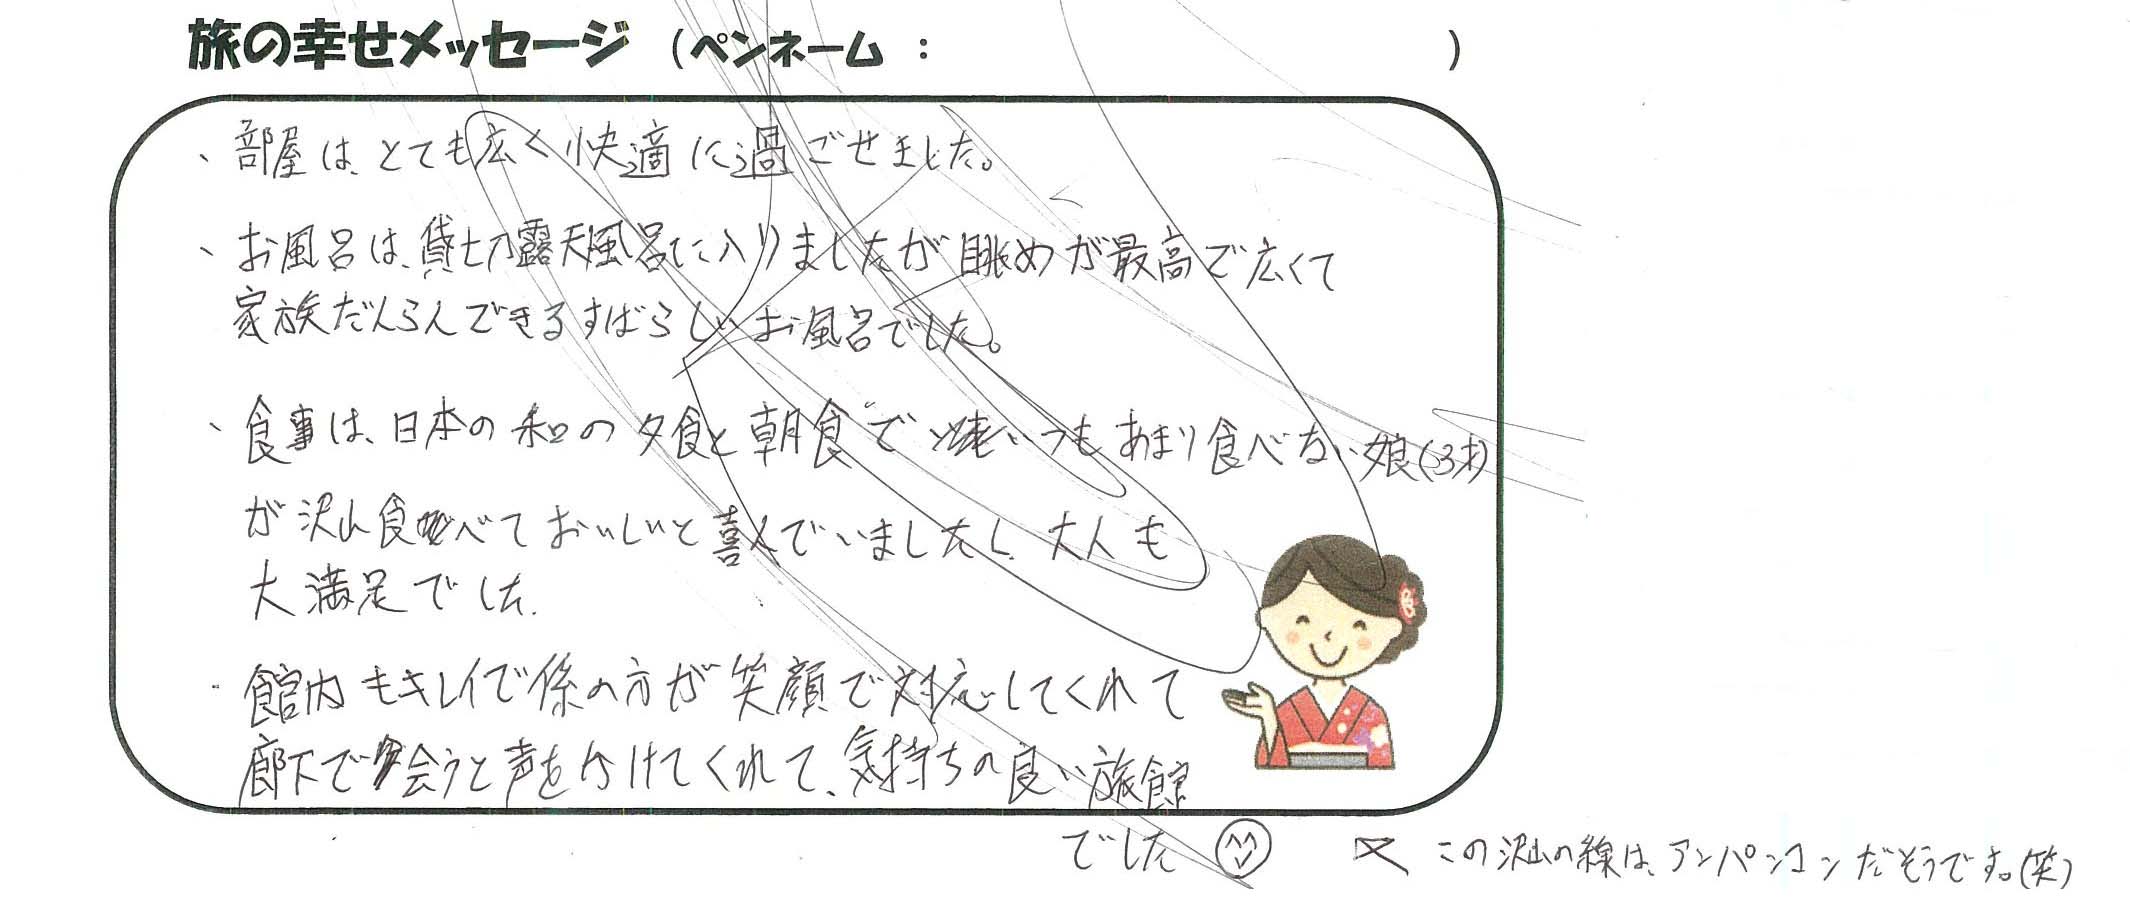 旅の幸せメッセージ (ペンネーム : )
、部屋は、とても広く快適に過ごせました。
、お風呂は、貸切露天風呂に入りましたが眺めが最高で広くて
家族だんらんできるすばらしいお風呂でした。
、食事は、日本の和の夕食と朝食でいつもあまり食べない娘(3才)
が沢山食べておいしいと喜んでいましたし、大人も
大満足でした。
・館内もキレイで係の方が笑顔で対応してくれて
廊下で会うと声をかけてくれて、気持ちの良い旅館
でした
この沢山の線は、アンパンマンだそうです。(笑)